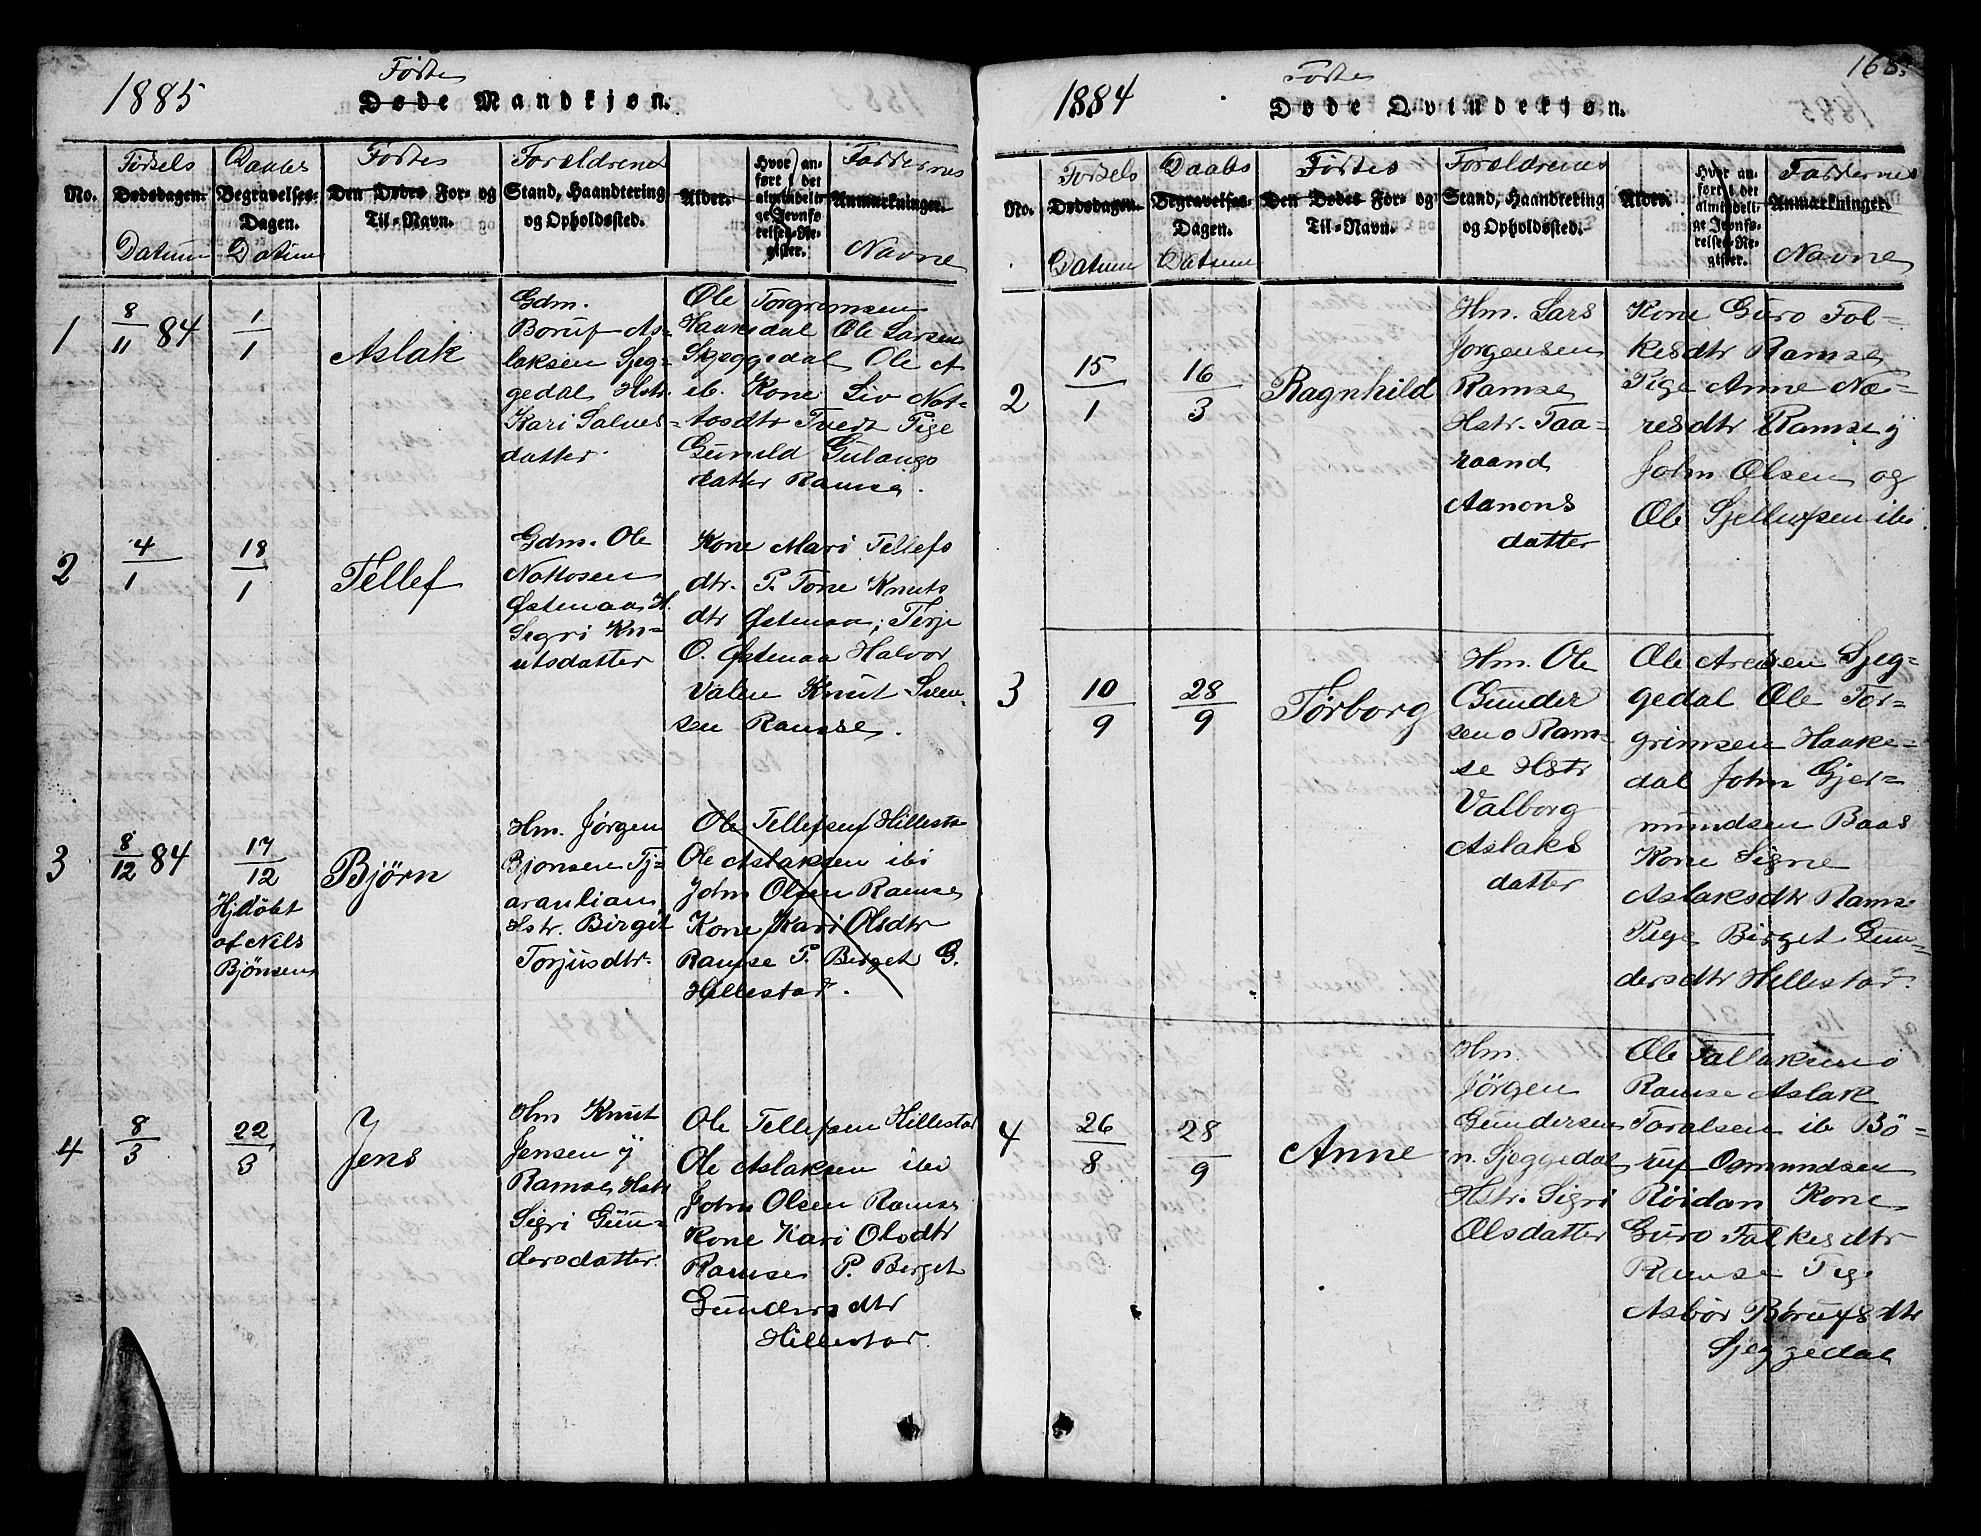 1885
Fødte
Døde Mandkjøn.
No.
Fødsels
Dødsdagen.
Datum
Daabs
Begravelses-
Dagen.
Datum
Fødtes
Den Dødes For- og
Til-Navn.
Forældrenes
Stand, Haandtering
og Opholdssted.
Alder.
Hvor an-
ført i det
almindeli-
ge Jevnfø-
relses-Re-
gister.
Faddernes
Anmærkninger.
Navne
1
8/11 84
1/1
Aslak
Gdm.
Boruf As-
laksen Sjeg-
gedal Hstr.
Kari Salves-
datter.
Ole Torgrimsen
Haakedal Ole Larsen
Skjeggedal Ole A
ib. Kone Liv Not-
tosdtr Tvedt Pige
Gunild Gulaugs
datter Ramse.
2
4/1
18/1
Tellef
Gdm. Ole
Nottosen
Østenaa H.
Segri Kn-
utsdatter
Kone Mari Tellefs
dtr. P. Tone Knuts
dtr Østenaa, Terje
O. Østenaa Halvor
Valen Knut Salve-
sen Ramse.
3
8/12 84
17/12
Hjdøbt
af Nils
Bjønsen
Bjørn
Hm. Jørgen
Bjønsen Tj-
aranlian
Hstr. Birgit
Torjusdtr.
Ole Tellefsen Hillesta
Ole Aslaksen ibi
John Olsen Ramse
Kone Kari Olsdtr
Ramse P. Berget G.
Hillestad.
4
8/3
22/3
Jens
Hm Knut
Jensen y
Ramse Hstr
Sigri Gun-
dersdatter.
Ole Tellefsen Hillestad
Ole Aslaksen ibi
John Olsen Ramse
Kone Kari Olsdtr
Ramse P. Berget
Gundersdtr
Hillestad.
1884
Fødte
Døde Qvindekjøn.
165.
No.
Fødsels
Dødsdagen.
Datum
Daabs
Begravelses-
Dagen.
Datum
Fødtes
Den Dødes For- og
Til-Navn.
Forældrenes
Stand, Haandtering
og Opholdssted.
Alder.
Hvor an-
ført i det
almindeli-
ge Jevnfø-
relses-Re-
gister.
Faddernes
Anmærkninger.
Navne
2
15/1
16/3
Ragnhild
Hm. Lars
Jørgensen
Ramse
Hstr. Taa-
raand
Aanons
datter
Kone Guro Fol-
kesdtr Ramse
Pige Anne Næ-
resdtr Ramse y
John Olsen og
Ole Sjellufsen ibi.
3
10/9
28/9
Torborg
Hm. Ole
Gunder
sen o Ram-
se Hstr
Valborg
Aslaks
datter
Ole Aresen Sjeg-
gedal Ole Tor-
grimsen Haake-
dal John Gjer-
mundsen Baas
Kone Signe
Aslaksdtr Ramse
Pige Birget Gun-
dersdtr Hillestad.
4
26/8
28/9
Anne
Hm.
Jörgen
Gundersen
n. Sjeggedal
Hstr. Sigri
Olsdatter
Ole Tallaksen o
Ramse Aslak
Toralsen ib Bö-
ruf Osmundsen
Röidan Kone
Guro Falkesdtr
Ramse Pige
Asbör Börufsdtr
Sjeggedal